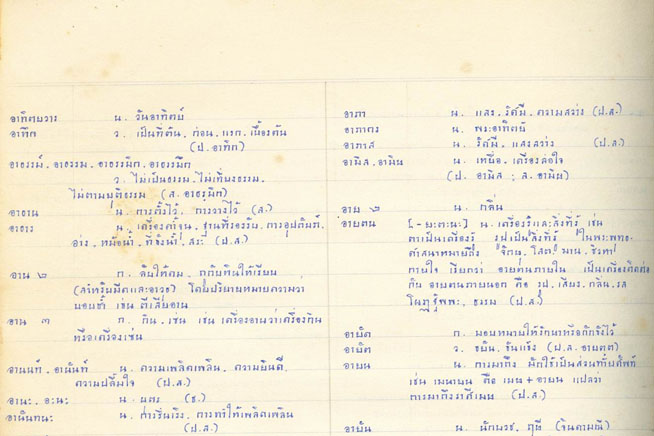 อาทิตยวาร น. วันอาทิตย์
อาทิก ว. เป็นที่ต้น, ก่อน, แรก, เบื้องต้น
(ป. อาทิก)
อาธรรม์, อาธรรม, อาธรรมิก, อาธรรมึก
ว. ไม่เป็นธรรม, ไม่เที่ยงธรรม,
ไม่ตามยุติธรรม (ส. อาธรฺมิก)
อาธาน น. การตั้งไว้, การวางไว้ (ส.)
อาธาร น. เครื่องค้ำจุน, ฐานที่รองรับ, การอุปถัมภ์,
อ่าง, หม้อน้ำ, ที่ขังน้ำ, สระ (ป.ส.)
อาน ๒ ก. ลับให้คม, ถูกับหินให้เรียบ
(สำหรับมีดและอาวุธ) โดยปริยายหมายความว่า
บอบช้ำ เช่น ตีเสียอาน
อาน ๓ ก. กิน, เซ่น เช่น เครื่องอานว่าเครื่องกิน
หรือเครื่องเซ่น
อานนท์, อานันท์ น. ความเพลิดเพลิน, ความยินดี,
ความปลื้มใจ (ป.ส.)
อานะ, อะนะ น. (ข.)
อานันทนะ น. การทำให้เพลิดเพลิน
(ป.ส.)
อาภา น. แสง, รัศมี, ความสว่าง (ป.ส.)
อาภากร น. พระอาทิตย์
อาภาส น. รัศมี, แสงสว่าง (ป.ส.)
อามิส, อามิษ น. เหยื่อ, เครื่องล่อใจ
(ป. อามิส ; ส. อามิษ)
อาย ๒ น. กลิ่น
อายตน [-ยะตะนะ] น. เครื่องรู้และสิ่งที่รู้ เช่น
ตาเป็นเครื่องรู้ รูปเป็นสิ่งที่รู้ ในพระพุทธ
ศาสนาหมายถึง จักษุ, โสต, ฆาน, ชิวหา
ภายใจ เรียกว่า อายตนภายใน เป็นเครื่องติดต่อ
กับ อายตนภายนอก คือ รูป, เสียง, กลิ่น, รส
โผฏฐัพพะ, ธรรม (ป.ส.)
อายัต ก. มอบหมายให้รักษาหรือกักขังไว้
อายัต ว. ขยัน, (ป.ส. อายตต)
อายน น. การมาถึง มักใช้เป็นส่วนท้ายศัพท์
เช่น เมษายน คือ เมษ + อายน แปลว่า
การมาถึงราศีเมษ (ป.ส.)
น. นักบวช, ฤษี (จินดามณี)